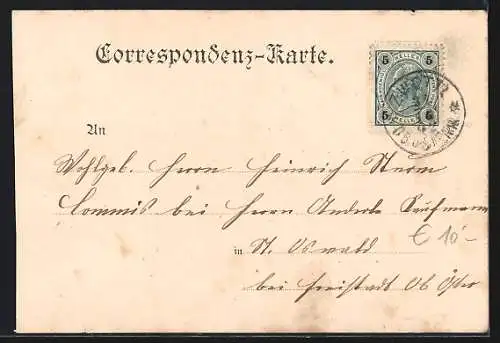 Correspondenz-Karte.
5 HELLER 5
5 HELLER 5
An
Wohlgeb. Herrn Heinrich Sturm
Commis bei Herrn Anderle Kaufmann
€ 10.-
in St. Oswald
bei Freistadt Ob Öster